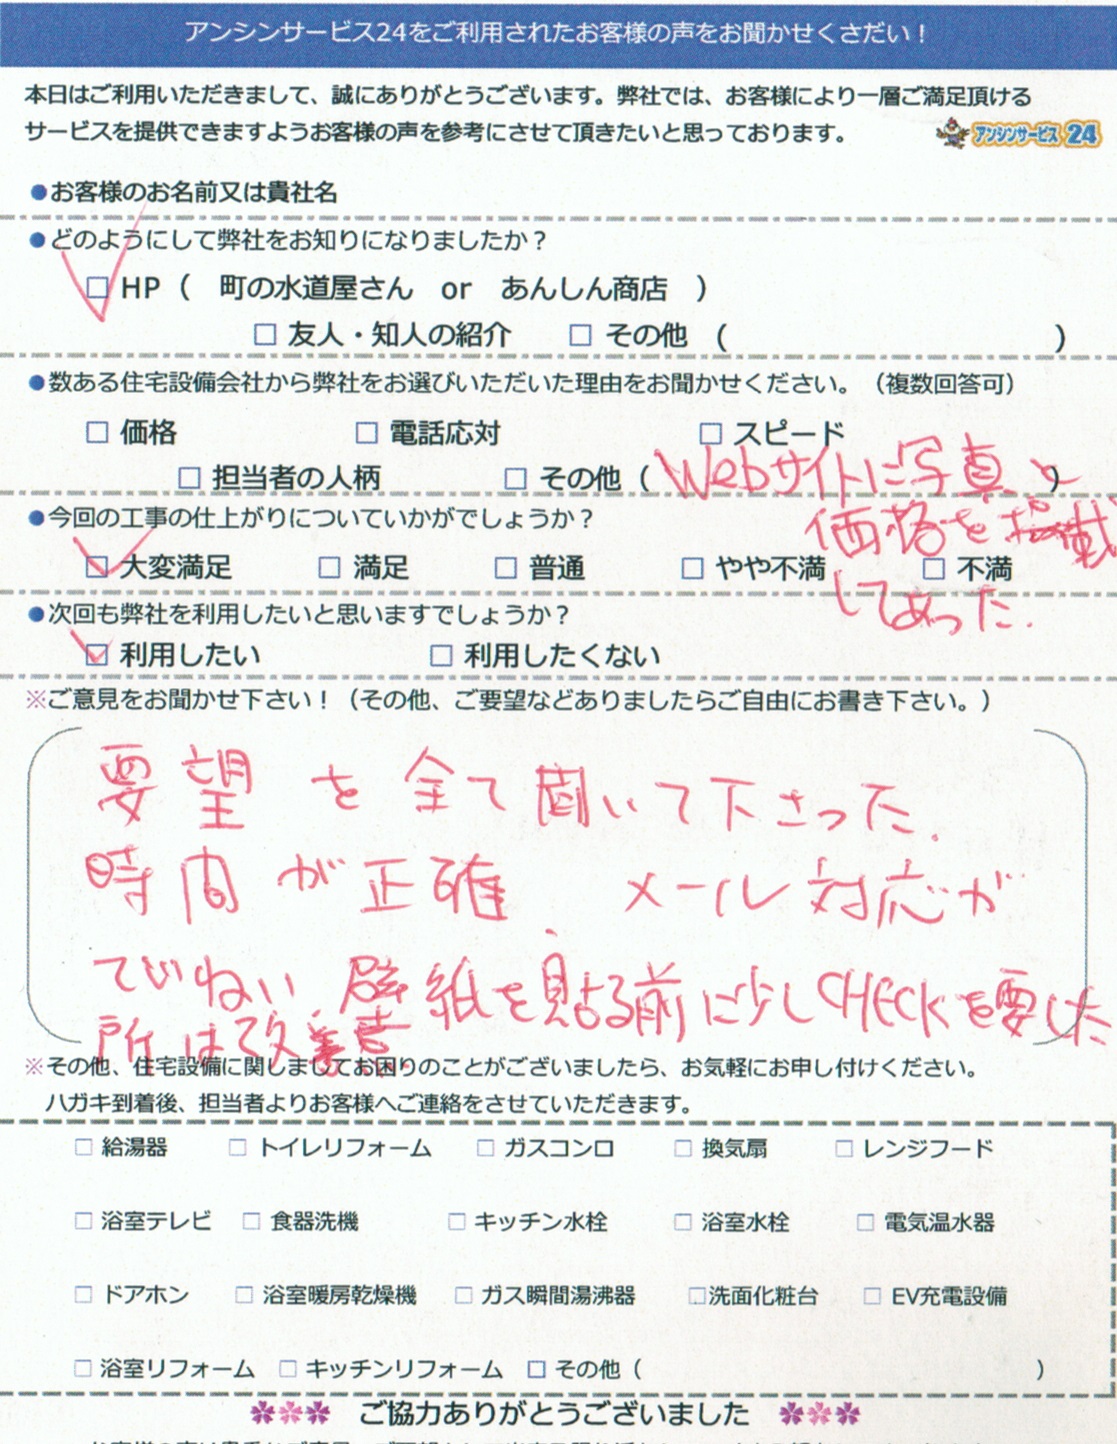 アンシンサービス24をご利用されたお客様の声をお聞かせくさだい！
本日はご利用いただきまして、誠にありがとうございます。弊社では、お客様により一層ご満足頂ける
サービスを提供できますようお客様の声を参考にさせて頂きたいと思っております。
アンシンサービス24
●お客様のお名前又は貴社名
●どのようにして弊社をお知りになりましたか？
☑ HP（　町の水道屋さん　or　あんしん商店　）
□ 友人・知人の紹介　□ その他　（　）
●数ある住宅設備会社から弊社をお選びいただいた理由をお聞かせください。（複数回答可）
□ 価格　□ 電話応対　□ スピード
□ 担当者の人柄　□ その他（Webサイトに写真と）
価格を掲載
してあった.
●今回の工事の仕上がりについていかがでしょうか？
☑ 大変満足　□ 満足　□ 普通　□ やや不満　□ 不満
●次回も弊社を利用したいと思いますでしょうか？
☑ 利用したい　□ 利用したくない
※ご意見をお聞かせ下さい！（その他、ご要望などありましたらご自由にお書き下さい。）
要望を全て聞いて下さった.
時間が正確、メール対応が
ていねい、壁紙を貼る前に少しCHECKを要した
所は改善
※その他、住宅設備に関しましてお困りのことがございましたら、お気軽にお申し付けください。
ハガキ到着後、担当者よりお客様へご連絡をさせていただきます。
□ 給湯器　□ トイレリフォーム　□ ガスコンロ　□ 換気扇　□ レンジフード
□ 浴室テレビ　□ 食器洗機　□ キッチン水栓　□ 浴室水栓　□ 電気温水器
□ ドアホン　□ 浴室暖房乾燥機　□ ガス瞬間湯沸器　□洗面化粧台　□ EV充電設備
□ 浴室リフォーム　□ キッチンリフォーム　□ その他（　）
ご協力ありがとうございました